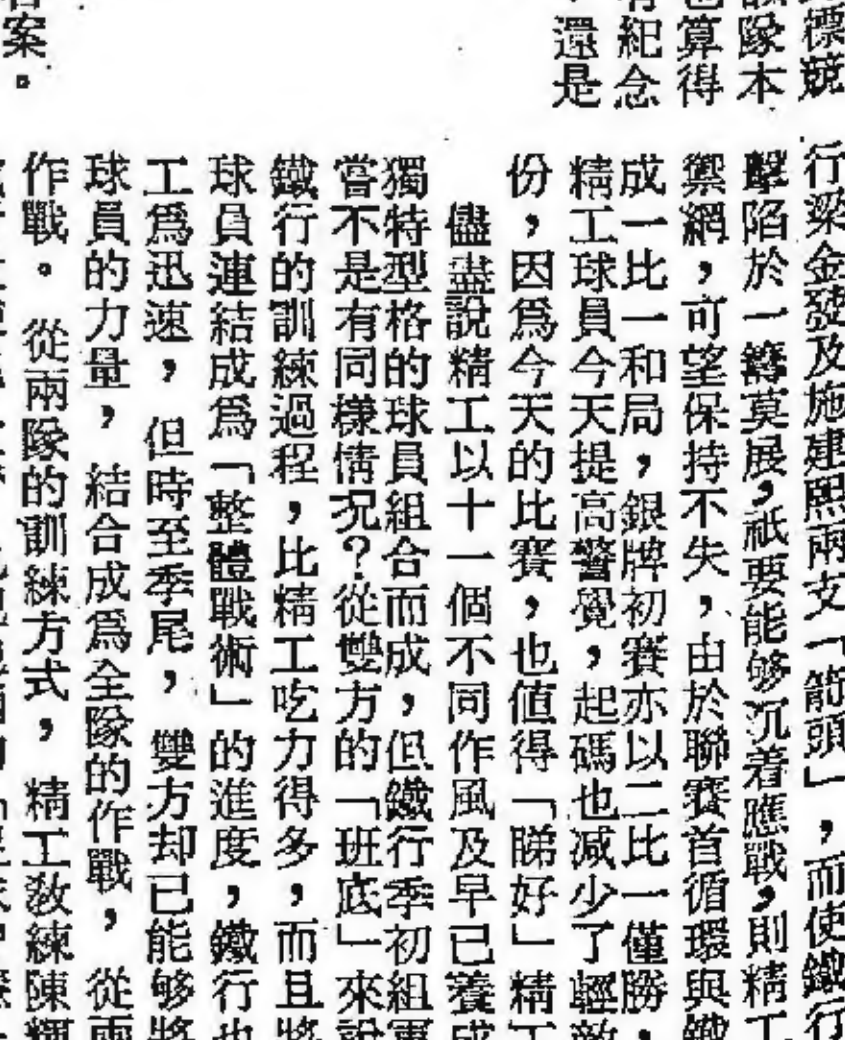 標競
隊本
算得
紀念
還是
案。
行梁金發及施建熙兩支「箭頭」，而使鐵行
擊陷於一籌莫展，祇要能够沉着應戰，則精工
禦網，可望保持不失，由於聯賽首循環與鐵
成一比一和局，銀牌初賽亦以二比一僅勝，
精工球員今天提高警覺，起碼也減少了輕敵
份，因爲今天的比賽，也值得「睇好」精工
儘盡說精工以十一個不同作風及早已養成
獨特型格的球員組合而成，但鐵行季初組軍
嘗不是有同樣情况？從雙方的「班底」來說
鐵行的訓練過程，比精工吃力得多，而且將
球員連結成爲「整體戰術」的進度，鐵行也
工爲迅速，但時至季尾，雙方却已能够將
球員的力量，結合成爲全隊的作戰，從兩
作戰。從兩隊的訓練方式，精工敎練陳輝